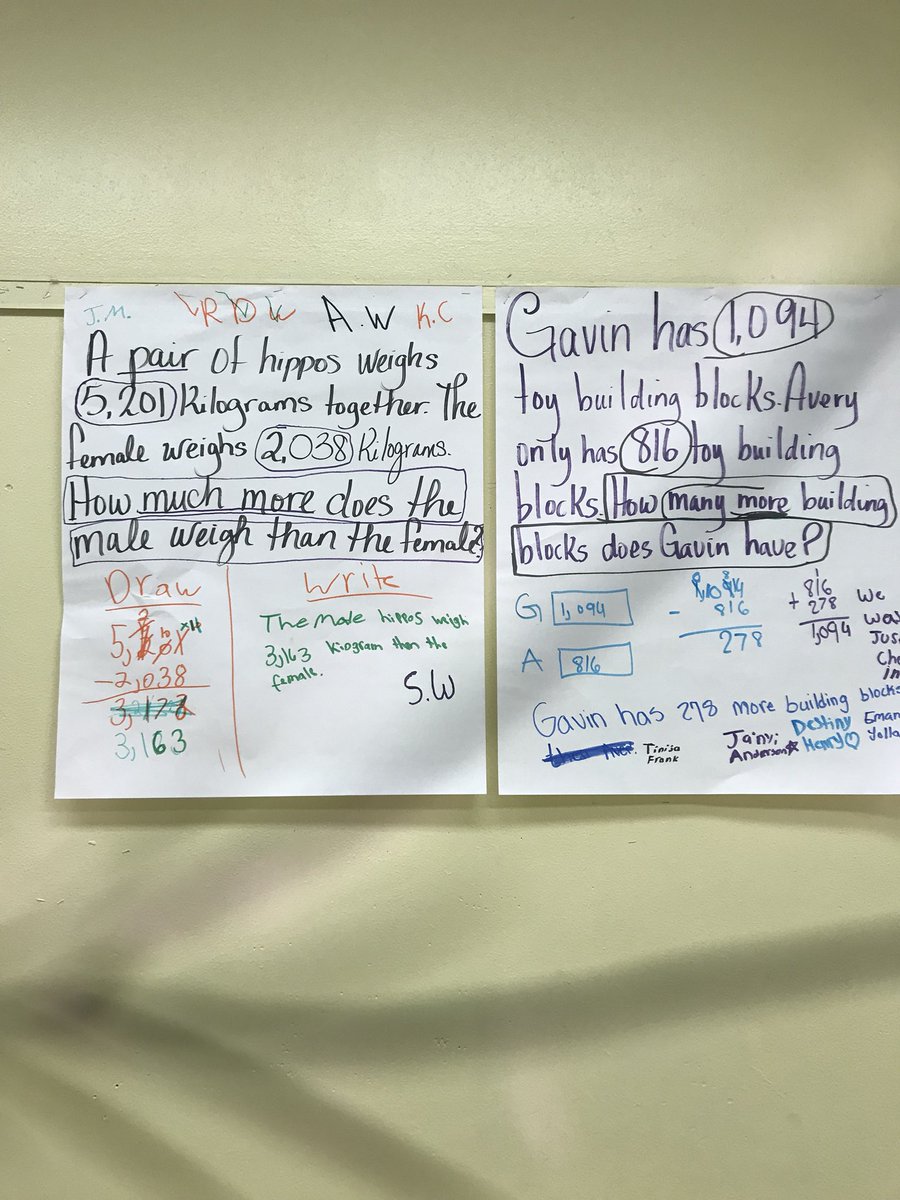 J.M. RDW A.W K.C
A pair of hippos weighs
5,201 Kilograms together. The
female weighs 2,038 Kilograms.
How much more does the
male weigh than the female?
Draw
5,
-2,038
3,173
3,163
Write
The Male hippos weigh
3,163 kilogram then the
female.
S.W
Gavin has 1,094
toy building blocks. Avery
only has 816 toy building
blocks. How many more building
blocks does Gavin have?
G 1,094
A 816
1,094
- 816
278
1
816
+ 278
1,094
We
Jus
Che
in
Gavin has 278 more building blocks
Tinisa
Frank
Jainy;
Anderson
Destiny
Henry
Eman
Yolla